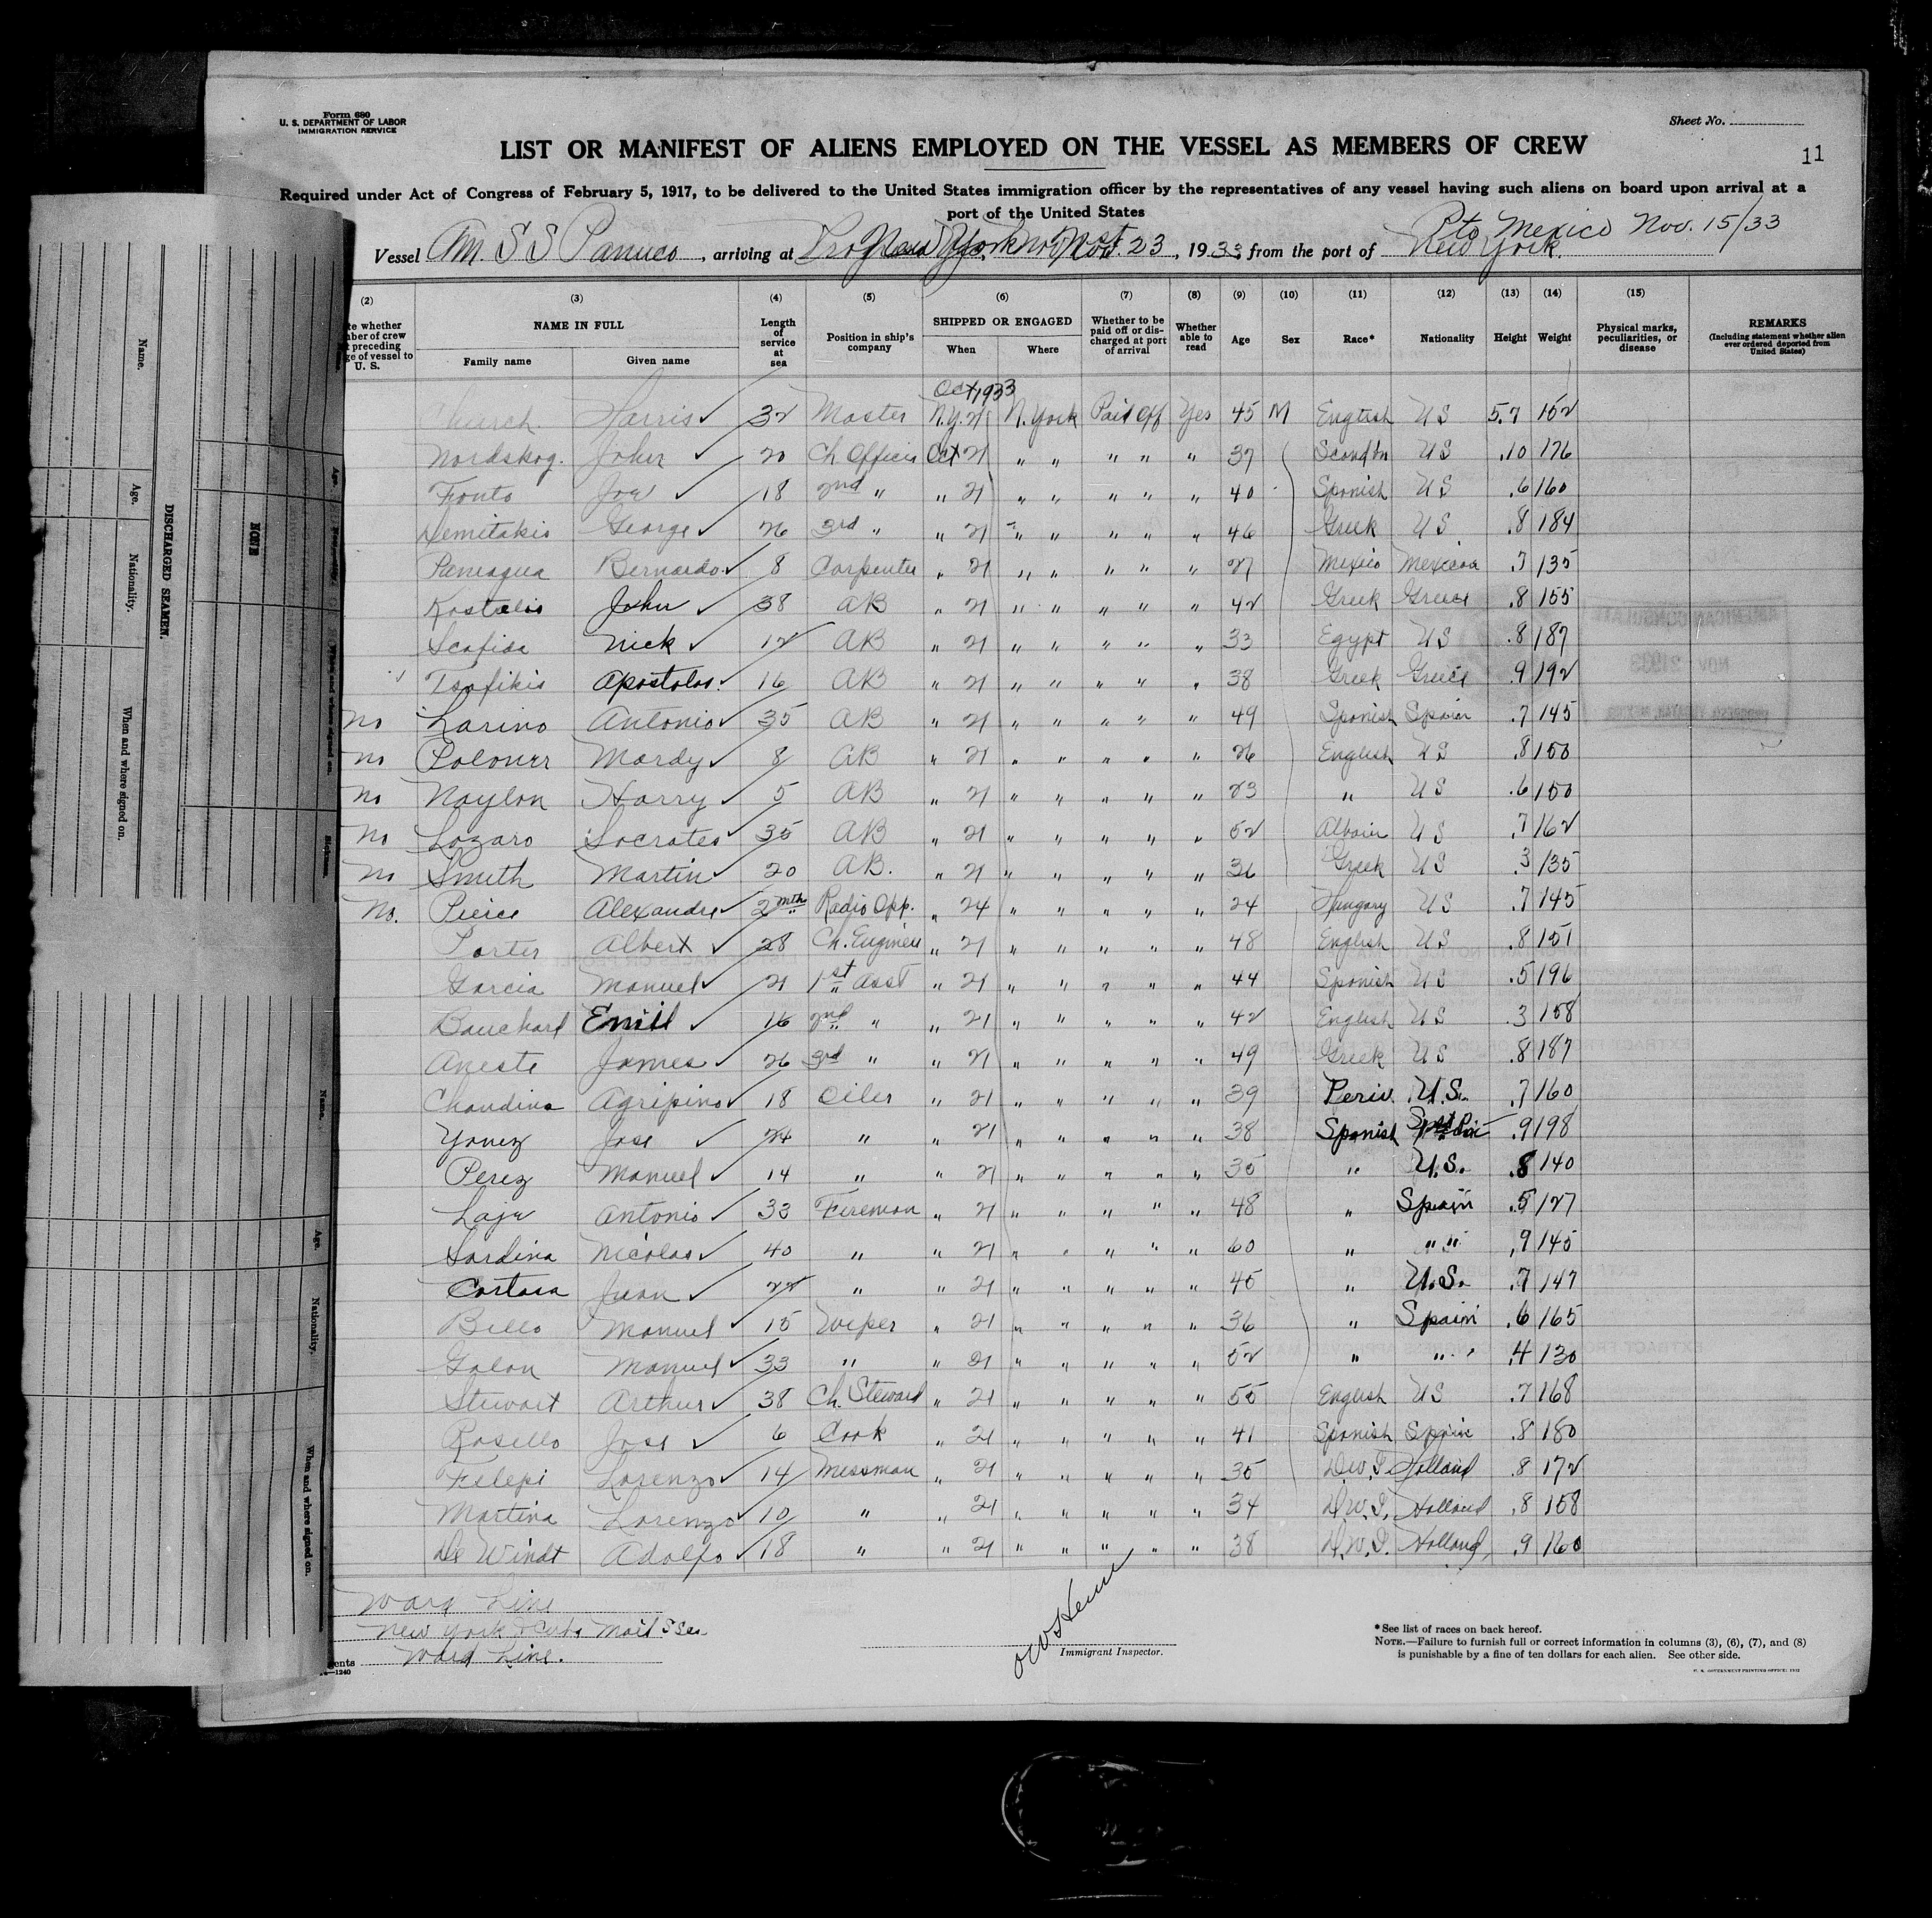 Form 680
U. S. DEPARTMENT OF LABOR
IMMIGRATION SERVICE
Sheet No.
LIST OR MANIFEST OF ALIENS EMPLOYED ON THE VESSEL AS MEMBERS OF CREW
11
Required under Act of Congress of February 5, 1917, to be delivered to the United States immigration officer by the representatives of any vessel having such aliens on board upon arrival at a
port of the United States
Pto Mexico Nov. 15/33
Vessel Am. SS Panuco, arriving at New York Nov. 23, 1933, from the port of New York.
(2) (3) (4) (5) (6) (7) (8) (9) (10) (11) (12) (13) (14) (15)
NAME IN FULL Family name Given name Length of service at sea Position in ship's company SHIPPED OR ENGAGED When Where Whether to be paid off or discharged at port of arrival Whether able to read Age Sex Race* Nationality Height Weight Physical marks, peculiarities, or disease REMARKS (Including statement whether alien ever ordered deported from United States)
Oct 1933
Church Harris ✓ 32 Master N.Y. 21 N. York Paid off Yes 45 M English US 5.7 152
Nordskog. John ✓ 20 Ch Officer Oct 21 " " " " " 37 Scand'n US .10 176
Fonto Joe ✓ 18 2nd " " 21 " " " " " 40 Spanish US .6 160
Demitakis George ✓ 26 3rd " " 21 " " " " " 46 Greek US .8 184
Paniagua Bernardo ✓ 8 Carpenter " 21 " " " " " 27 Mexico Mexican .7 135
Kostalis John ✓ 38 AB " 21 " " " " " 42 Greek Greece .8 155
Scafida Nick ✓ 12 AB " 21 " " " " " 33 Egypt US .8 187
Tsafikis Apostolos 16 AB " 21 " " " " " 38 Greek Greece .9 192
No Larino Antonio ✓ 35 AB " 21 " " " " " 49 Spanish Spain .7 145
No Poloner Mordy ✓ 8 AB " 21 " " " " " 26 English US .8 150
No Naylon Harry ✓ 5 AB " 21 " " " " " 23 " US .6 150
No Lozaro Socrates ✓ 35 AB " 21 " " " " " 52 US .7 162
No Smith Martin ✓ 20 AB. " 21 " " " " " 36 Greek US .3 135
No. Pierce Alexandre ✓ 2 mth Radio Opp. " 24 " " " " " 24 Hungary US .7 145
Porter Albert ✓ 28 Ch. Engineer " 21 " " " " " 48 English US .8 151
Garcia Manuel ✓ 21 1st Asst " 21 " " " " " 44 Spanish US .5 196
Bouchard Emill ✓ 16 2nd " " 21 " " " " " 42 English US .3 158
Aneste James ✓ 26 3rd " " 21 " " " " " 49 Greek US .8 187
Chaudina Agripino ✓ 18 Oiler " 21 " " " " " 39 Periv. U.S. .7 160
Yanez Jose ✓ 24 " " 21 " " " " " 38 Spanish .9 198
Perez Manuel ✓ 14 " " 21 " " " " " 35 " U.S. .8 140
Laje Antonio ✓ 33 Fireman " 21 " " " " " 48 " Spain .5 127
Sardina Nicolas ✓ 40 " " 21 " " " " " 60 " " " .9 145
Cortaza Juan ✓ 22 " " 21 " " " " " 45 " U.S. .7 147
Bello Manuel ✓ 15 Wiper " 21 " " " " " 36 " Spain .6 165
Galan Manuel ✓ 33 " " 21 " " " " " 52 " " " .4 130
Stewart Arthur ✓ 38 Ch. Steward " 21 " " " " " 55 English US .7 168
Rosello Jose ✓ 6 Cook " 21 " " " " " 41 Spanish Spain .8 180
Felepi Lorenzo ✓ 14 Messman " 21 " " " " " 35 D.W.I. Holland .8 172
Martina Lorenzo 10 " " 21 " " " " " 34 D.W.I. Holland .8 158
De Windt Adolfo ✓ 18 " " 21 " " " " " 38 D.W.I. Holland .9 160
Ward Line
New York & Cuba Mail SS Co.
Ward Line.
Immigrant Inspector.
*See list of races on back hereof.
NOTE.—Failure to furnish full or correct information in columns (3), (6), (7), and (8)
is punishable by a fine of ten dollars for each alien. See other side.
U. S. GOVERNMENT PRINTING OFFICE: 1932
DISCHARGED SEAMEN.
Name. Age. Nationality. When and where signed on.
NONE
Name. Age. Nationality. When and where signed on.